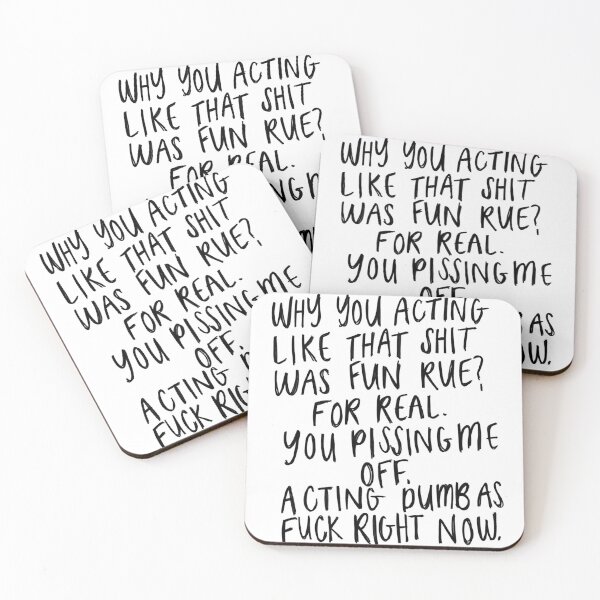 WHY YOU ACTING
LIKE THAT SHIT
WAS FUN RUE?
FOR REAL.
ME
WHY YOU ACTING
LIKE THAT SHIT
WAS FUN RUE?
FOR REAL.
YOU PISSING ME
OFF.
AS
NOW.
WHY YOU ACTING
LIKE THAT SHIT
WAS FUN RUE?
FOR REAL.
YOU PISSING ME
OFF.
ACTING
FUCK RIGHT
WHY YOU ACTING
LIKE THAT SHIT
WAS FUN RUE?
FOR REAL.
YOU PISSING ME
OFF.
ACTING DUMB AS
FUCK RIGHT NOW.